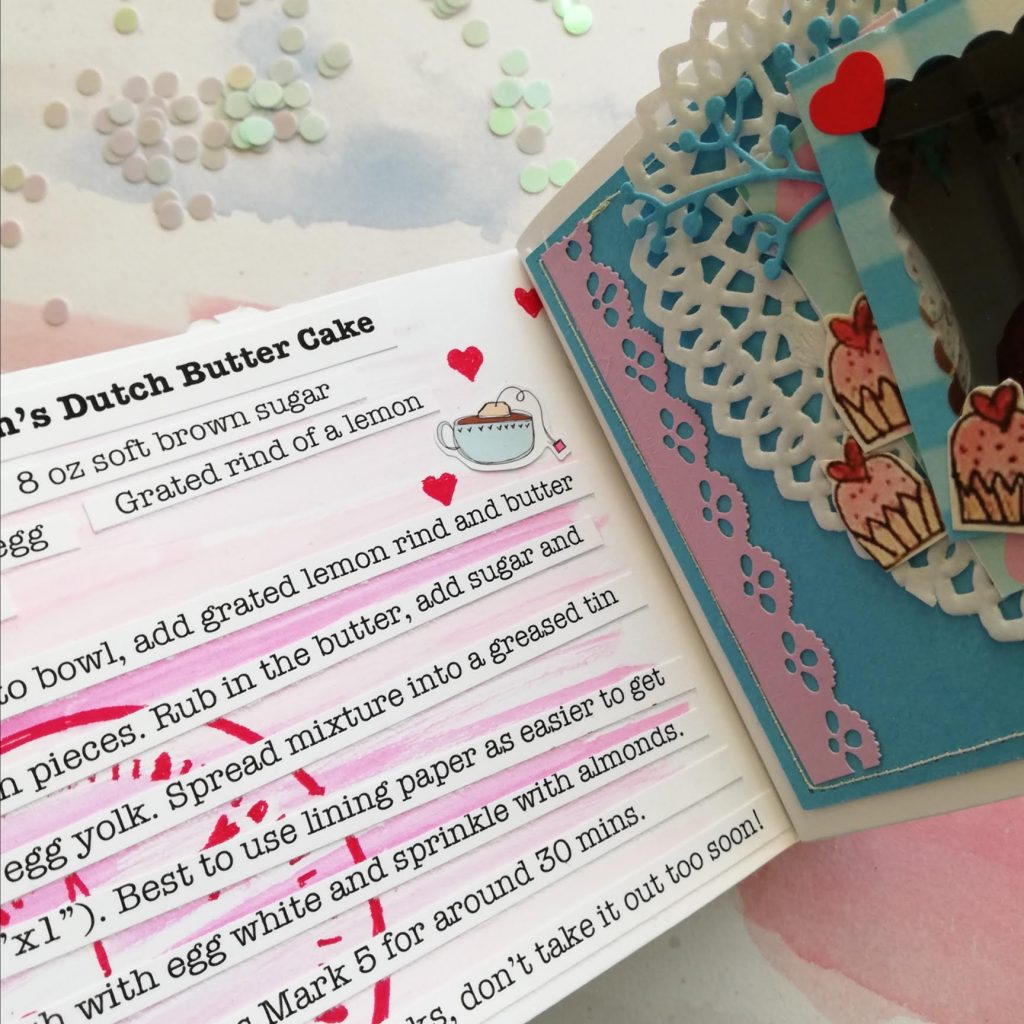 n's Dutch Butter Cake
8 oz soft brown sugar
Grated rind of a lemon
egg
to bowl, add grated lemon rind and butter
n pieces. Rub in the butter, add sugar and
egg yolk. Spread mixture into a greased tin
"x1"). Best to use lining paper as easier to get
h with egg white and sprinkle with almonds.
s Mark 5 for around 30 mins.
ks, don't take it out too soon!